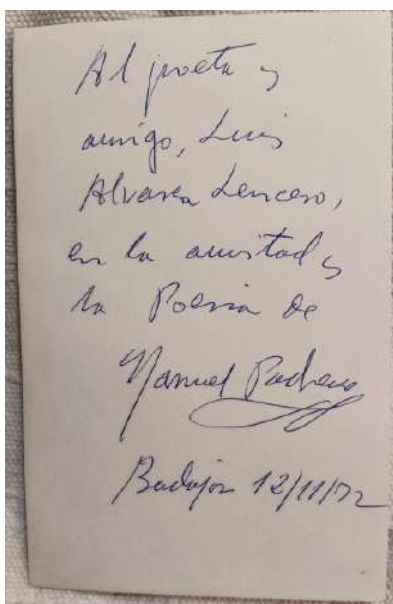 Al poeta y
amigo, Luis
Alvarez Lencero,
en la amistad y
la Poesia de
Manuel Pacheco
Badajoz 12/11/72